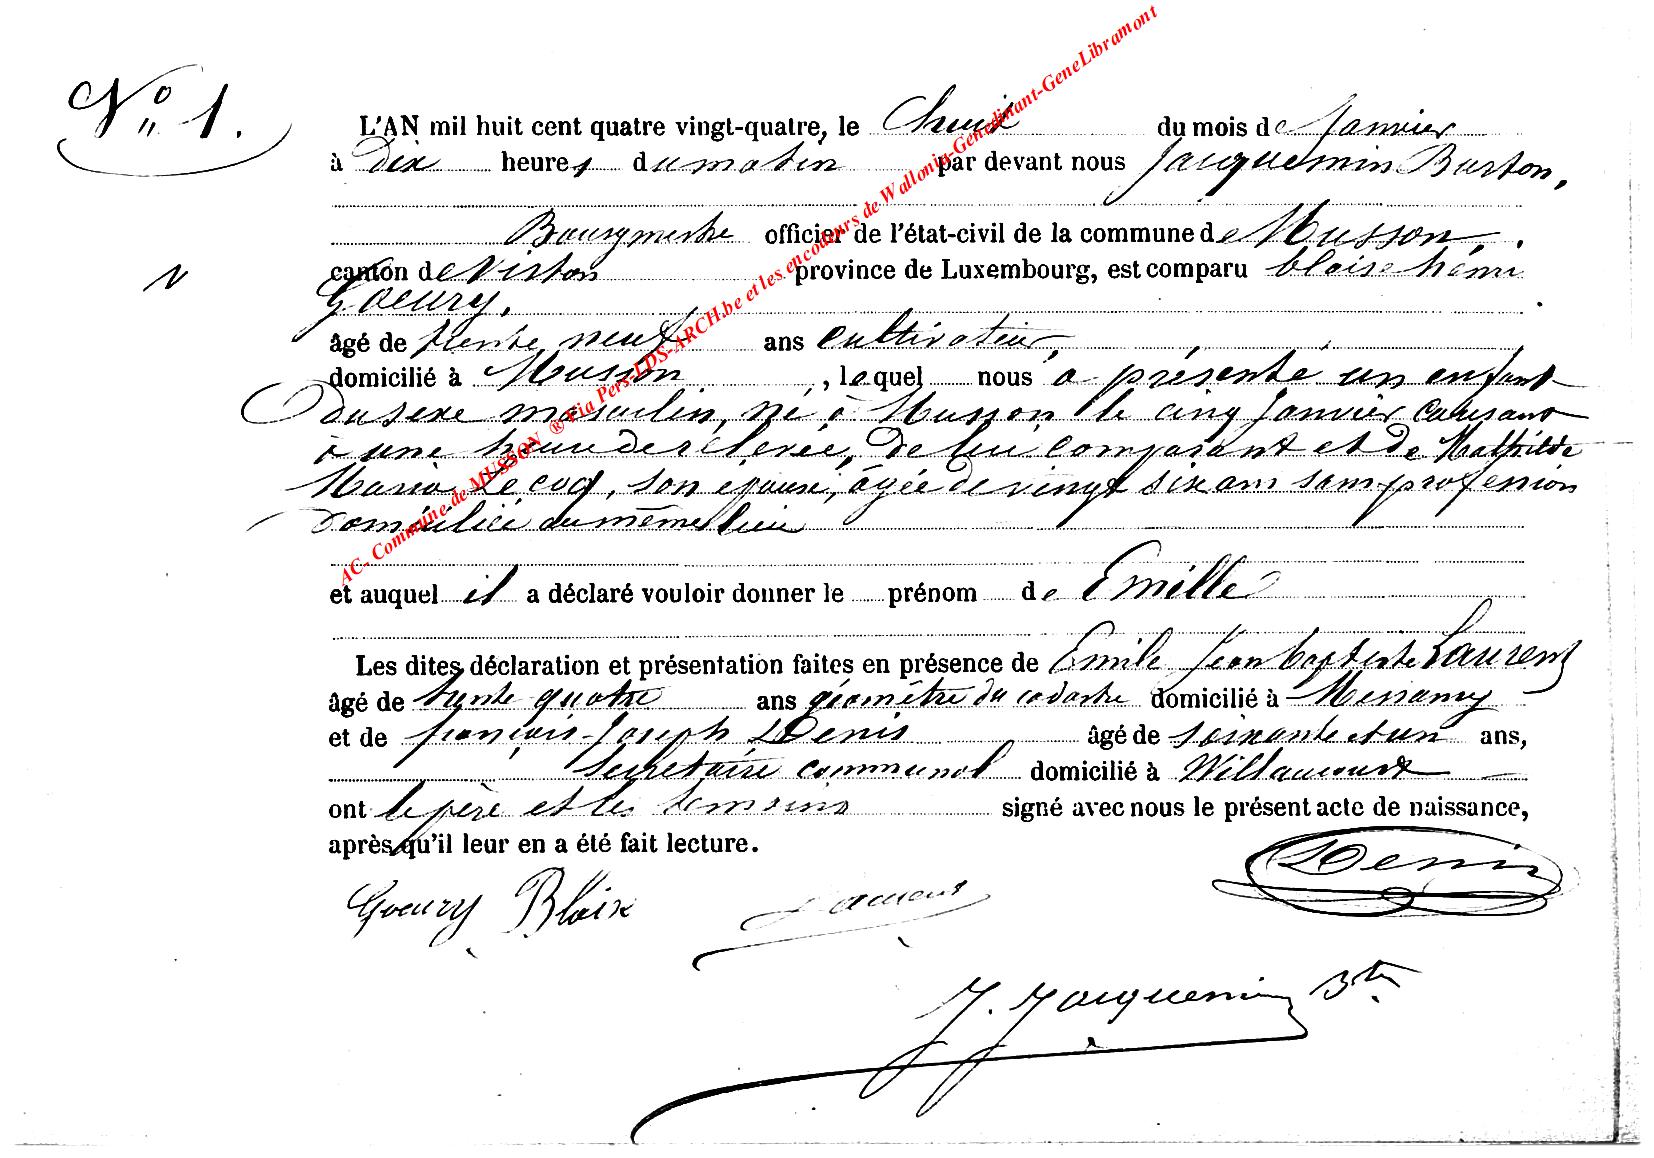 N° 1.
L'AN mil huit cent quatre vingt-quatre, le huit du mois de Janvier
à Dix heures du matin par devant nous Jacquemin Burton,
Bourgmestre officier de l'état-civil de la commune de Musson,
canton de Virton province de Luxembourg, est comparu blaise Rémi
Goeury,
âgé de trente neuf ans cultivateur,
domicilié à Musson, lequel nous a présenté un enfant
du sexe masculin, né à Musson le cinq Janvier courant
à une heure de relevée, de lui comparant et de Mathilde
Maria Lecoq, son épouse, âgée de vingt six ans sans profession
Domiciliée au même lieu
et auquel il a déclaré vouloir donner le prénom de Emille
Les dites déclaration et présentation faites en présence de Emile Jean baptiste Laurent
âgé de trente quatre ans géomètre du cadastre domicilié à Messancy
et de françois-Joseph Denis âgé de soixante et un ans,
Secrétaire communal domicilié à Willancourt
ont le père et les temoins signé avec nous le présent acte de naissance,
après qu'il leur en a été fait lecture.
Goeury Blaix Laurent Denis
J. Jacquemin Btn
AC- Commune de MUSSON ® Via Pers-LDS-ARCH.be et les encodeurs de Wallonia-Genedinant-GeneLibramont